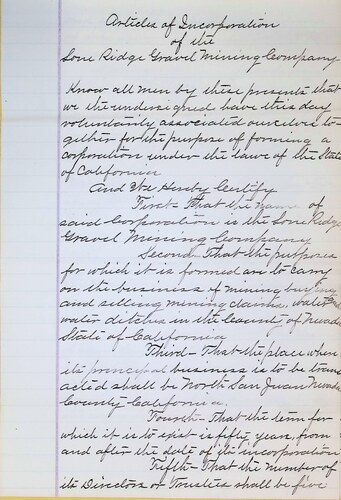 Articles of Incorporation
of the
Lone Ridge Gravel Mining Company
Know all men by these presents that
we the undersigned have this day
voluntarily associated ourselves to-
gether for the purpose of forming a
corporation under the laws of the State
of California
And We Hereby Certify
First - That the name of
said Corporation is the Lone Ridge
Gravel Mining Company
Second - That the purposes
for which it is formed are to carry
on the business of mining buying
and selling mining claims, water and
water ditches in the County of Nevada
State of California
Third - That the place where
its principal business is to be trans
acted shall be North San Juan Nevada
County California.
Fourth - That the term for
which it is to exist is fifty years, from
and after the date of its incorporation
Fifth - That the number of
its Directors or Trustees shall be five